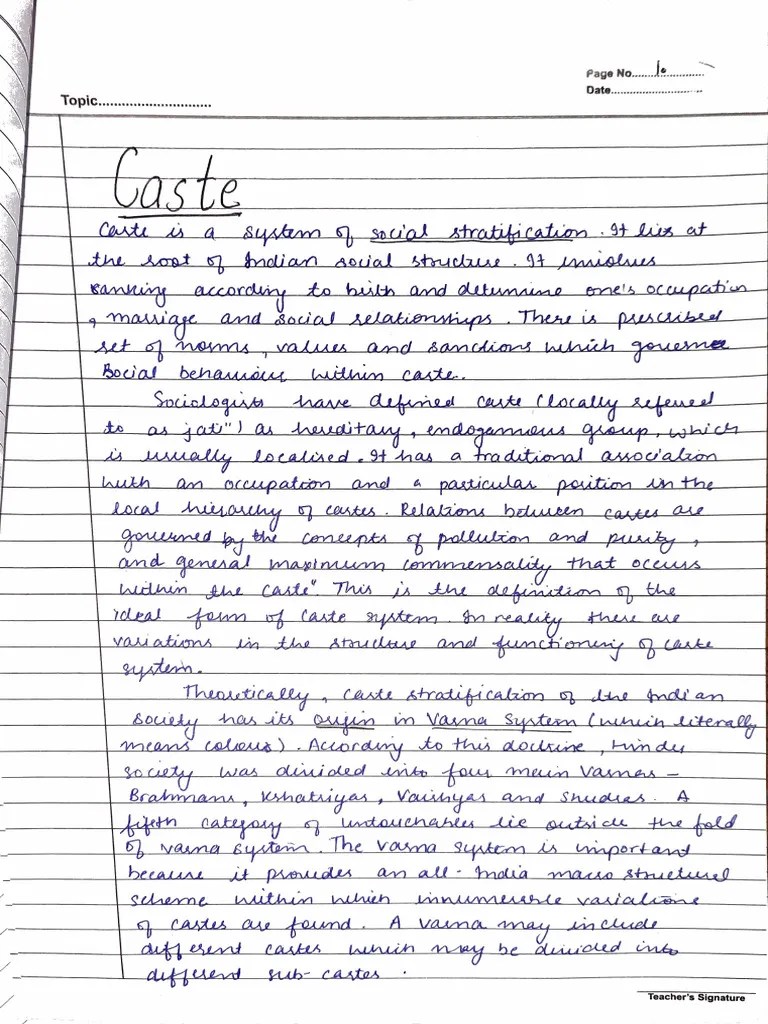 Page No.......10.............
Date............................
Topic............................
Caste
Caste is a system of social stratification. It lies at
the root of Indian social structure. It involves
ranking according to birth and determine one's occupation
, marriage and social relationships. There is prescribed
set of norms, values and sanctions which governs
social behaviour within caste.
Sociologists have defined caste (locally referred
to as jati") as hereditary, endogamous group, which
is usually localised. It has a traditional association
with an occupation and a particular position in the
local hierarchy of castes. Relations between castes are
governed by the concepts of pollution and purity,
and general maximum commensality that occurs
within the caste". This is the definition of the
ideal form of caste system. In reality there are
variations in the structure and functioning of caste
system.
Theoretically, caste stratification of the Indian
society has its origin in Varna System (which literally
means colour). According to this doctrine, Hindu
society was divided into four main Varnas –
Brahmans, Kshatriyas, Vaishyas and Shudras. A
fifth category of untouchables lie outside the fold
of varna system. The varna system is important
because it provides an all-India macro structural
scheme within which innumerable variations
of castes are found. A varna may include
different castes which may be divided into
different sub-castes.
Teacher's Signature